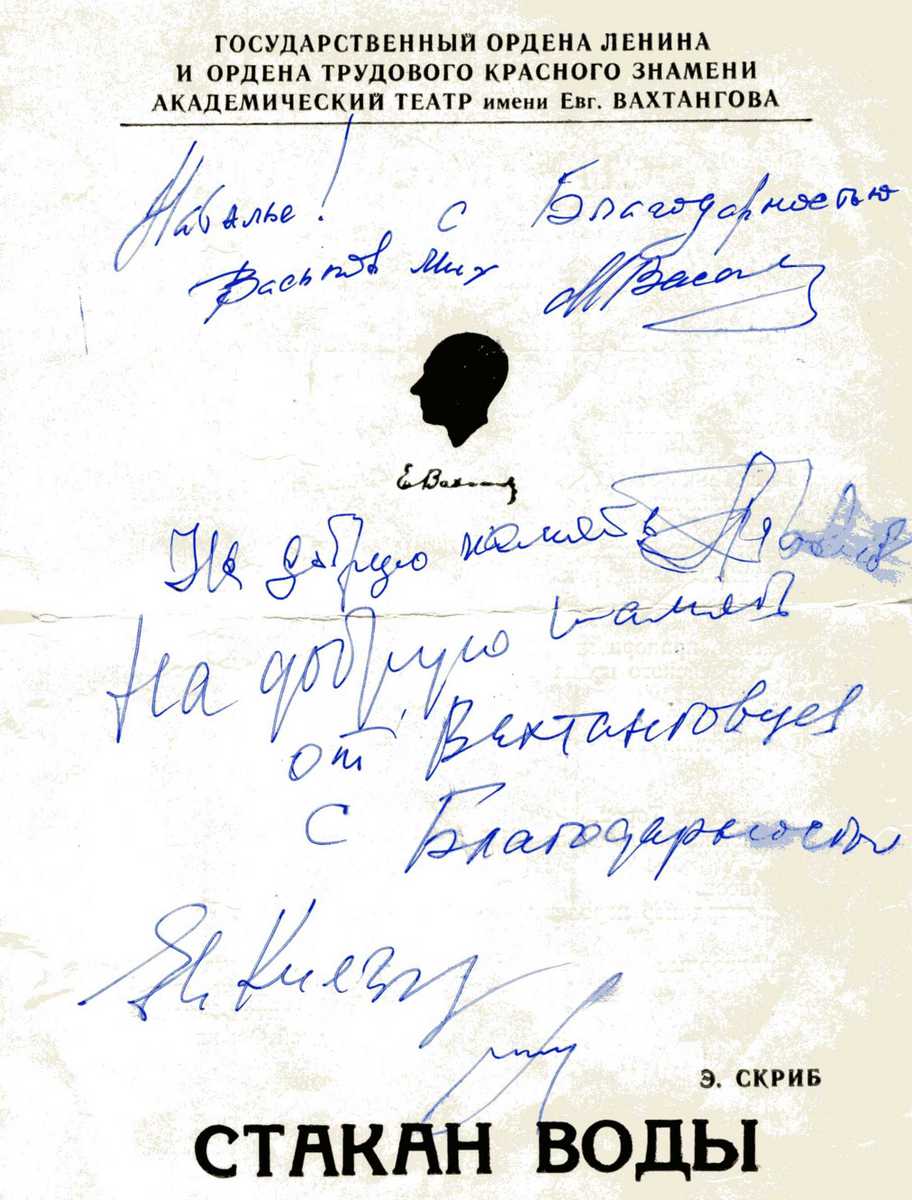 ГОСУДАРСТВЕННЫЙ ОРДЕНА ЛЕНИНА
И ОРДЕНА ТРУДОВОГО КРАСНОГО ЗНАМЕНИ
АКАДЕМИЧЕСКИЙ ТЕАТР имени Евг. ВАХТАНГОВА
Наталье! с Благодарностью
Васьков Мих
На добрую память
На добрую память
от Вахтанговцев
с Благодарностью
Э. СКРИБ
СТАКАН ВОДЫ